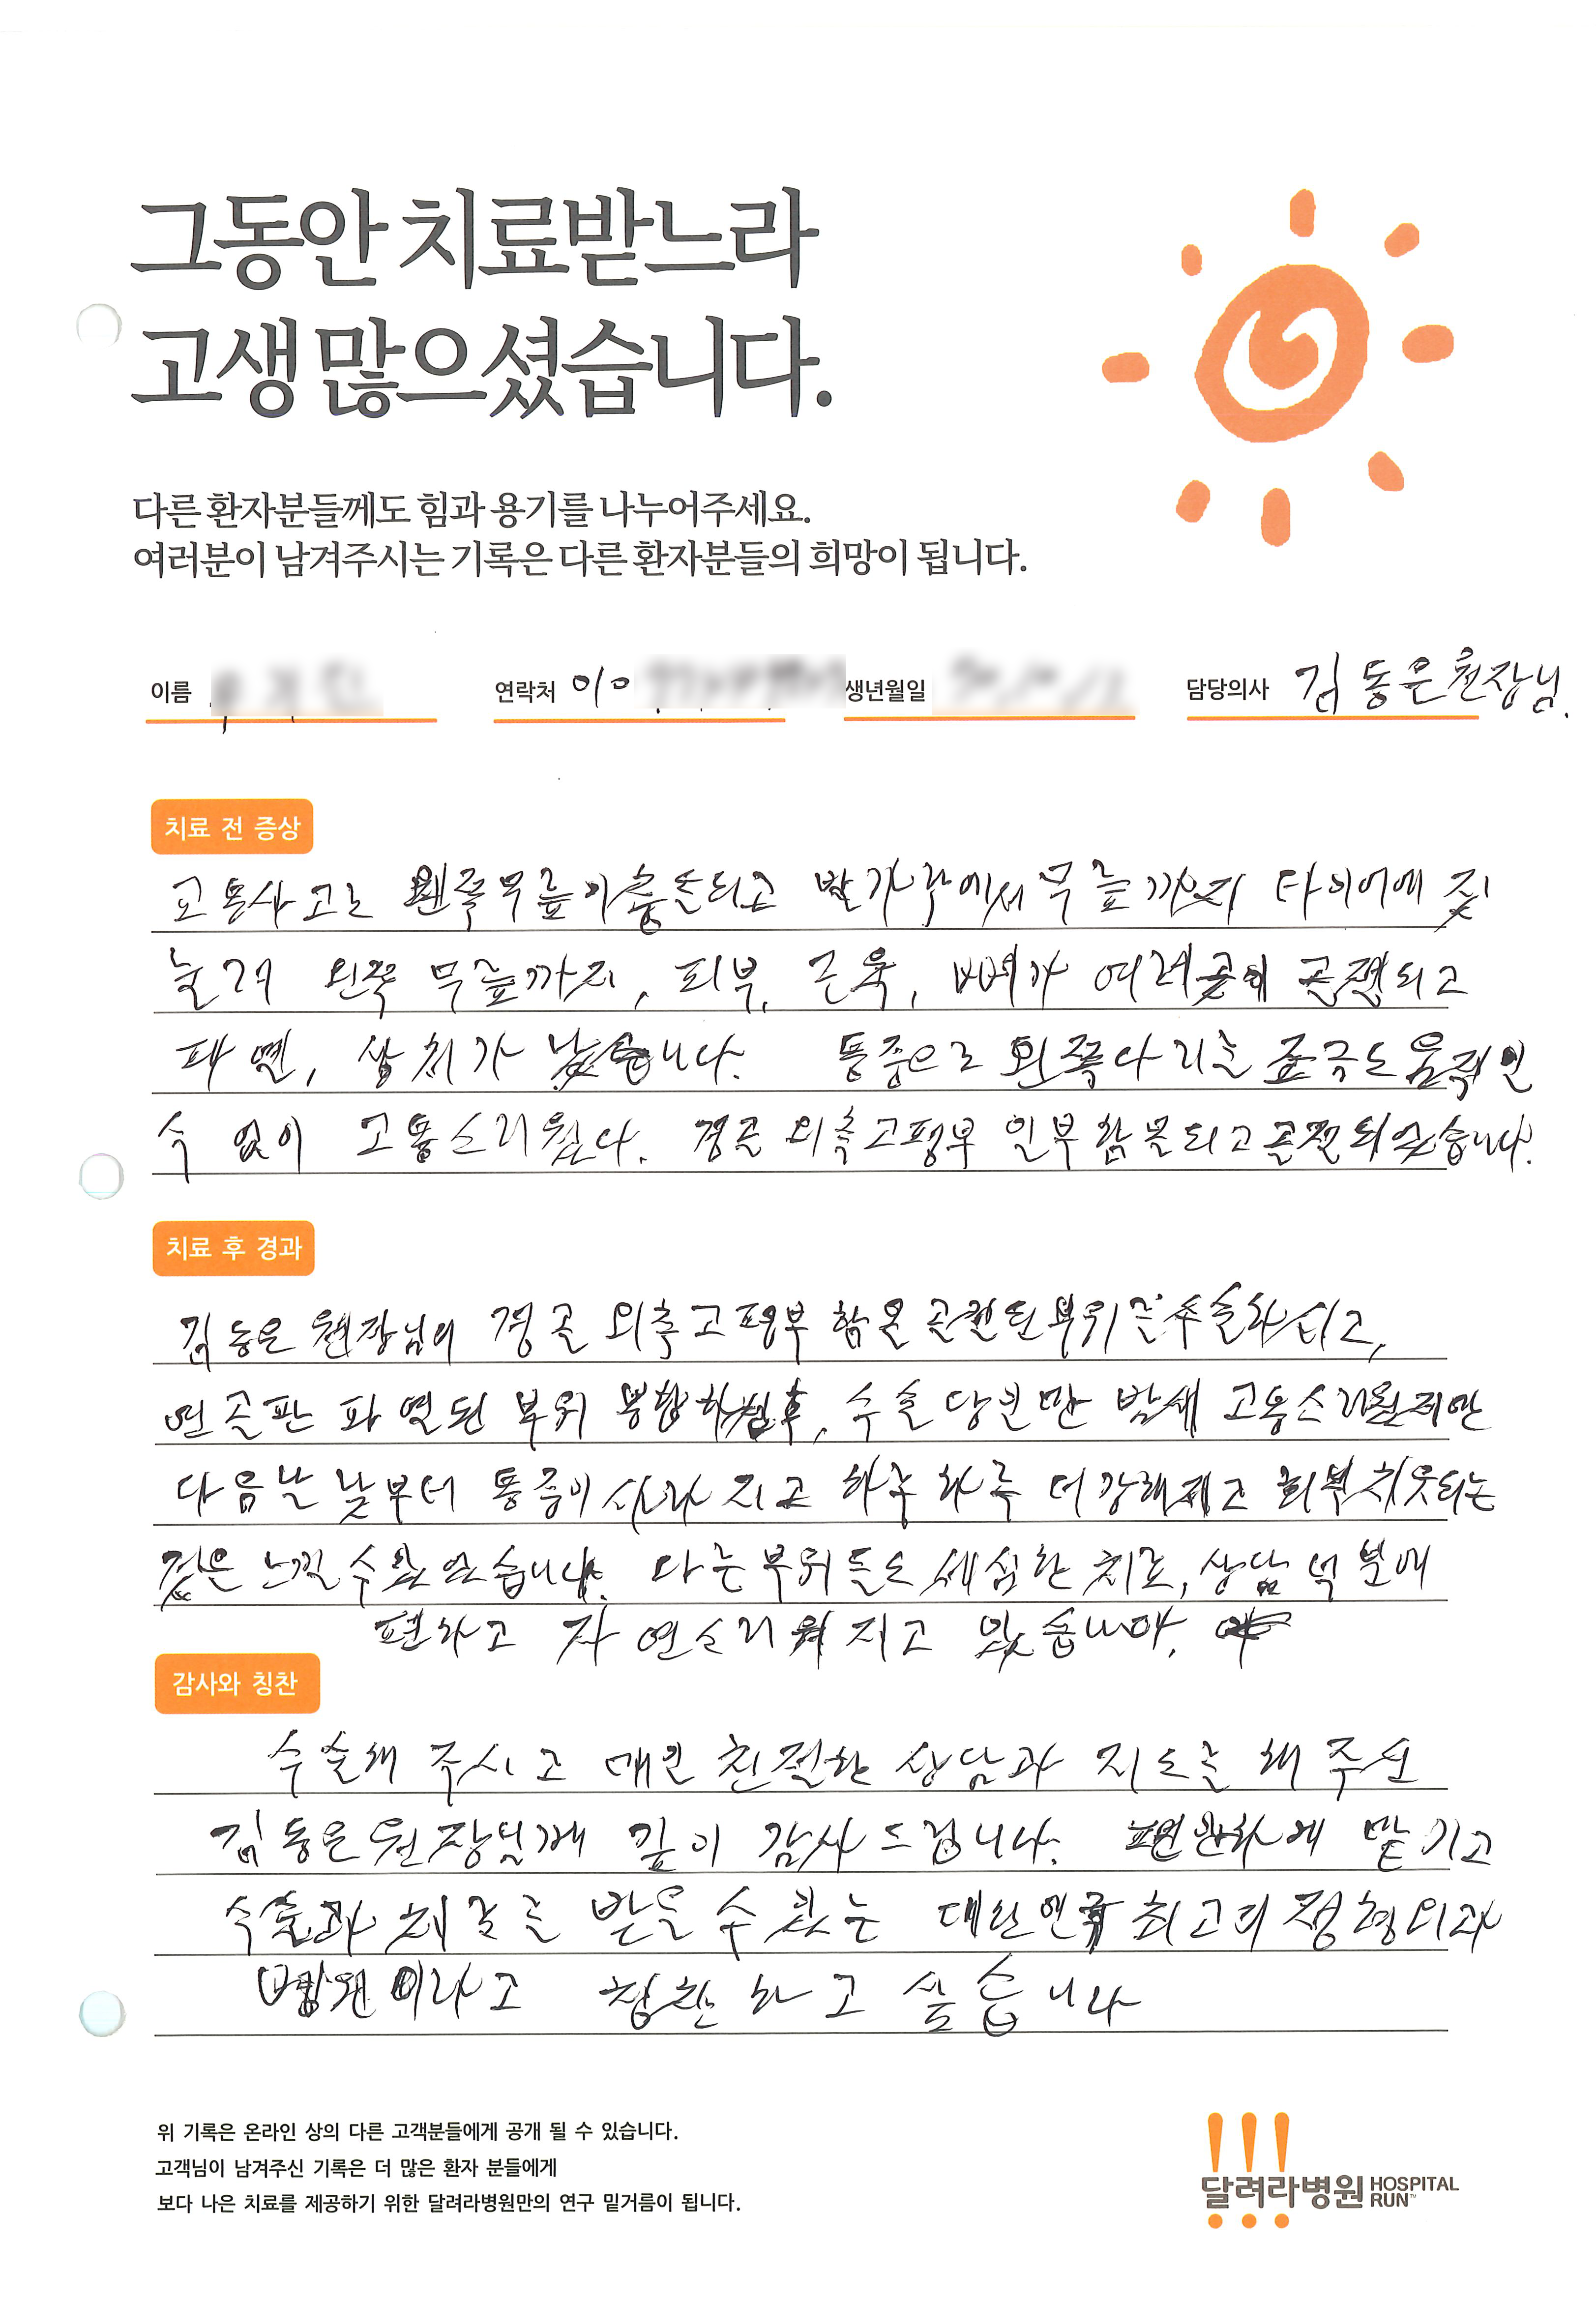 그동안 치료받느라
고생 많으셨습니다.
다른 환자분들께도 힘과 용기를 나누어주세요.
여러분이 남겨주시는 기록은 다른 환자분들의 희망이 됩니다.
이름 연락처 010 생년월일 담당의사 김동은원장님.
치료 전 증상
교통사고로 왼쪽무릎이충돌되고 발가락에서 무릎까지 타이어에 짓
눌려 왼쪽 무릎까지, 피부, 근육, 뼈가 여러곳이 골절되고
파열, 상처가 났습니다. 통증으로 왼쪽다리를 조금도 움직일
수 없이 고통스러웠다. 경골 외측고평부 일부함몰되고골절되었습니다.
치료 후 경과
김동은 원장님이 경골 외측고평부 함몰 골절된부위를 수술하시고,
연골판 파열된 부위 봉합하신후, 수술 당일만 밤새 고통스러웠지만
다음날 낮부터 통증이 사라지고 하루하루 더 강해지고 회복치유되는
것을 느낄수 있었습니다. 다른부위들도 세심한 치료, 상담 덕분에
편하고 자연스러워지고 있습니다.
감사와 칭찬
수술해 주시고 매일 친절한 상담과 지도를 해 주신
김동은원장님께 깊이 감사드립니다. 편안하게 맡기고
수술과 치료를 받을 수 있는 대한민국 최고의 정형외과
병원이라고 칭찬하고 싶습니다
위 기록은 온라인 상의 다른 고객분들에게 공개 될 수 있습니다.
고객님이 남겨주신 기록은 더 많은 환자 분들에게
보다 나은 치료를 제공하기 위한 달려라병원만의 연구 밑거름이 됩니다.
달려라병원 HOSPITAL RUN™